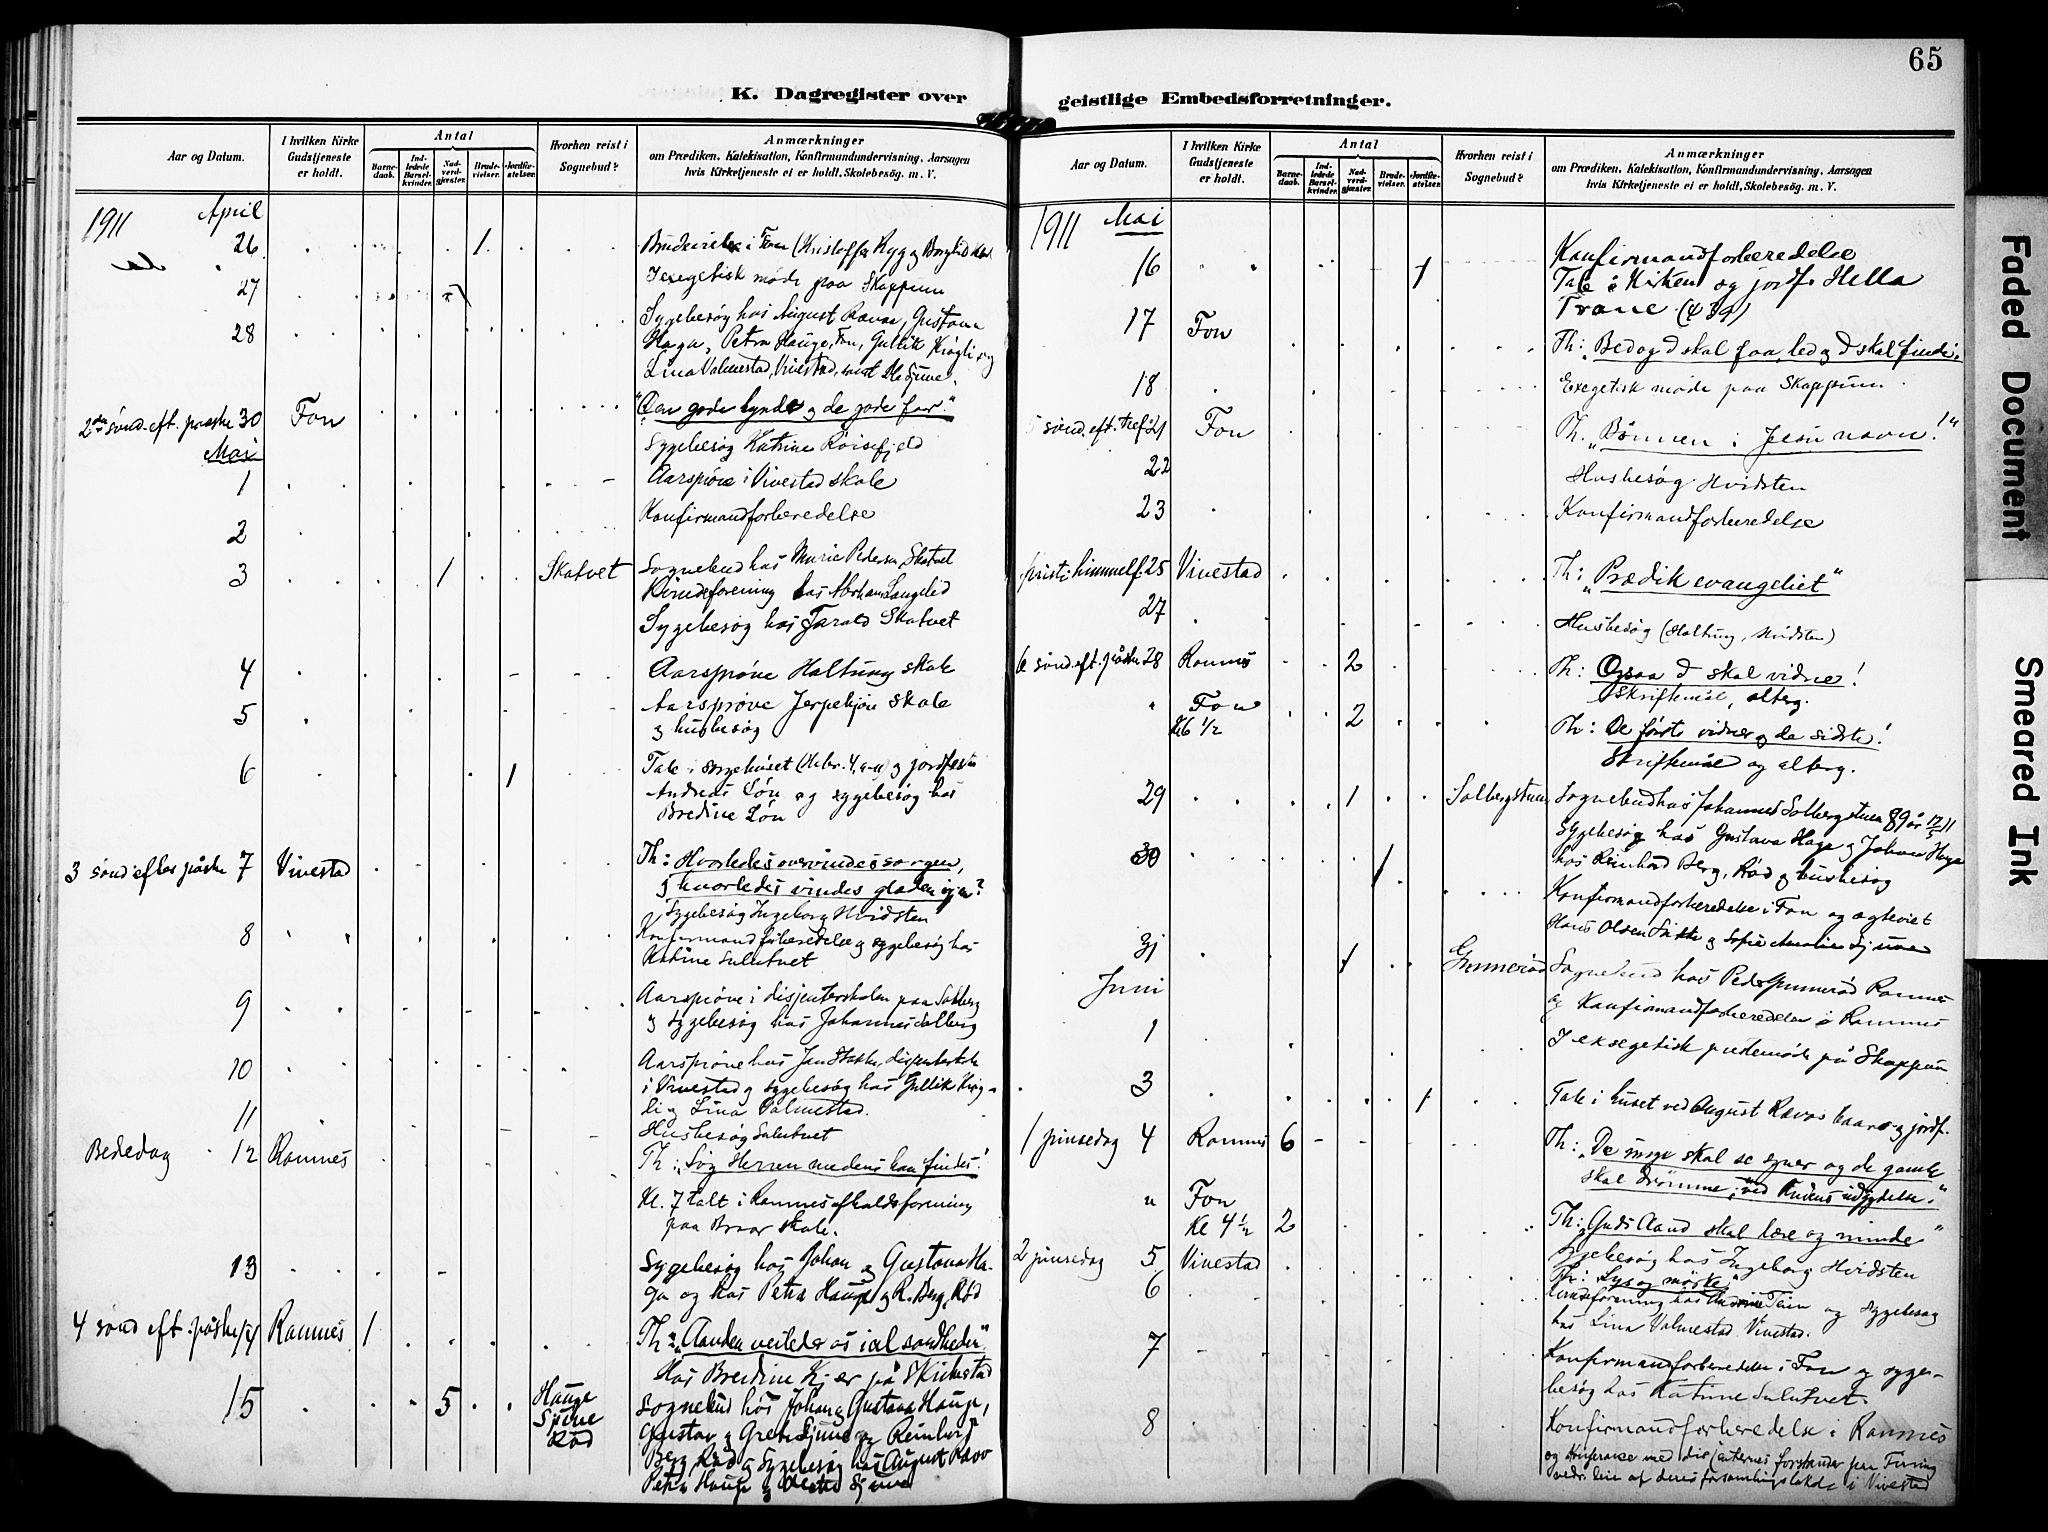 65
K. Dagregister over
geistlige Embedsforretninger.
Aar og Datum.
I hvilken Kirke
Gudstjeneste
er holdt.
Antal
Barne-
daab.
Ind-
ledede
Barsel-
kvinder.
Nad-
verd-
gjæster.
Brude-
vielser.
Jordfæ-
stelser.
Hvorhen reist i
Sognebud?
Anmærkninger
om Prædiken, Katekisation, Konfirmandundervisning, Aarsagen
hvis Kirketjeneste ei er holdt, Skolebesøg. m. V.
1911 April
26 1 i Fon (Kristoffer Ryg og
27 I exegetisk møde paa Skoppum
28 Sygebesøg hos August Ravaa, Gustava
Haga, Petra Hauge, Fon, Gullik Krogli og
Lina Valmestad, Vivestad, samt Sjuve.
2den sønd. eft. påske 30 Fon "Den gode hyrde og de gode faar."
Sygebesøg Katrine
Mai
1 Aarsprøve i Vivestad skole
2 Konfirmandforberedelse
3 1 Skatvet Sognebud hos Marie Pedersen Skatvet
Kvindeforening hos Abraham Langelid
Sygebesøg hos Tarald Skatvet
4 Aarsprøve Haltung skole
5 Aarsprøve Jerpekjøn skole
og husbesøg
6 1 Tale i sørgehuset (Hebr. 4, 9-11) og jordfæstn
Andreas Løn og sygebesøg hos
Bredine Løn
3 sønd efter påske 7 Vivestad Th: Hvorledes overvindes sorgen,
og hvorledes vindes glæden igjen?
Sygebesøg Ingeborg Hvidsten
8 Konfirmandforberedelse og sygebesøg hos
Katrine Sulutvet
9 Aarsprøve i disjenterskolen paa Solberg
og sygebesøg hos Johannes Solberg
10 Aarsprøve hos Jan disjenterskole
i Vivestad og sygebesøg hos Gullik Krog-
li og Lina Valmestad.
11 Husbesøg Sulutvet
Bededag 12 Ramnes Th: „Søg Herren medens han findes!
Kl. 7 talt i Ramnes afholdsforening
paa Braar skole.
13 Sygebesøg hos Johan og Gustava Ha-
ga og hos Petra Hauge og R. Berg, Rød
4 sønd eft. påske 14 Ramnes 1 Th: „Aanden veileder os i al sandheden"
Hos Bredine Kjær på Skirestad
15 5 Hauge
Sjuve
Rød
Sognebud hos Johan og Gustava Hauge,
Gustav og Grete Sjuve og Reinhard
Berg Rød og Sygebesøg hos August Ravo
Petra Hauge og Sjuve
Aar og Datum.
I hvilken Kirke
Gudstjeneste
er holdt.
Antal
Barne-
daab.
Ind-
ledede
Barsel-
kvinder.
Nad-
verd-
gjæster.
Brude-
vielser.
Jordfæ-
stelser.
Hvorhen reist i
Sognebud?
Anmærkninger
om Prædiken, Katekisation, Konfirmandundervisning, Aarsagen
hvis Kirketjeneste ei er holdt, Skolebesøg. m. V.
1911 Mai
16 1 Konfirmandforberedelse
Tale i Kirken og jordf. Hella
Trane
17 Fon Th: „Bed og I skal faa, led og I skal finde"
18 Exegetisk møde paa Skoppum.
5 sønd. eft. 21 Fon Th. „Bønnen i Jesu navn!"
22 Husbesøg Hvidsten
23 Konfirmandforberedelse
Kristi himmelf. 25 Vivestad Th: „Prædik evangeliet"
27 Husbesøg (Haltung, Hvidsten)
6 sønd. eft. påske 28 Ramnes 2 Th: Ogsaa I skal vidne!
Skriftemål, alterg.
" Fon
kl 6 1/2 2 Th: De første vidner og de sidste!
Skriftemål og alterg.
29 1 Solbergstuen Sognebud hos Johannes Solbergstuen 89 år 12/5 11
Sygebesøg hos Gustava Haga og Johan Haga
hos Reinhard Berg, Rød og husbesøg
30 1 Konfirmandforberedelse i Fon og ægteviet
Hans Olsen og Sofie Amalie Sjuve
31 1 Gunnerød Sognebud hos Peder Gunnerød Ramnes
og Konfirmandforberedelse i Ramnes
Juni
1 I eksegetisk prestemøde på Skoppum
3 1 Tale i huset ved August Ravos baare og jordf.
1 pinsedag 4 Ramnes 6 Th: „De unge skal se syner og de gamle
skal drømme, ved Aandens udgydelse."
" Fon
Kl 4 1/2 2 Th: „Guds Aand skal lære og minde"
Sygebesøg hos Ingeborg Hvidsten
2 pinsedag 5 Vivestad Th: „Lys og mørke"
6 Kvindeforening hos og sygebesøg
hos Lina Valmestad Vivestad.
7 Konfirmandforberedelse i Fon og syge-
besøg hos Katrine Sulutvet.
8 Konfirmandforberedelse i Ramnes
og Konferanse med dissenternes forstander paa
indvielsen af deres forsamlingslokale i Vivestad
Faded Document
Smeared Ink